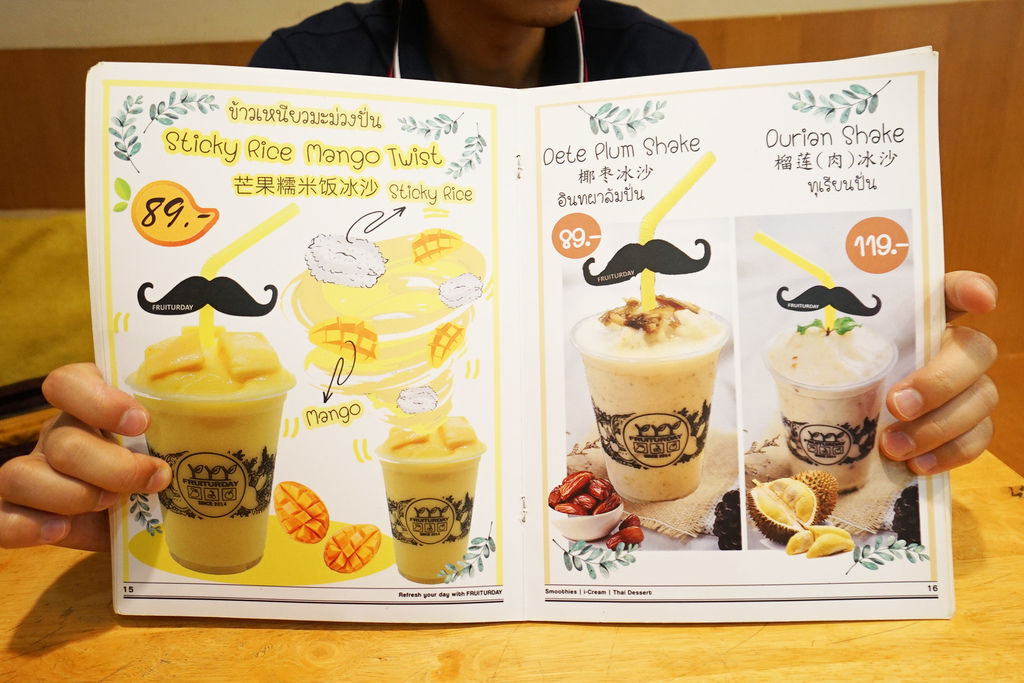 ข้าวเหนียวมะม่วงปั่น
Sticky Rice Mango Twist
芒果糯米饭冰沙 Sticky Rice
89.-
FRUITURDAY
Mango
FRUITURDAY
SINCE 2014
FRUITURDAY
15
Refresh your day with FRUITURDAY
Dete Plum Shake
椰枣冰沙
อินทผาลัมปั่น
89.-
FRUITURDAY
FRUITURDAY
Durian Shake
榴莲(肉)冰沙
ทุเรียนปั่น
119.-
FRUITURDAY
FRUITURDAY
Smoothies | i-Cream | Thai Dessert
16